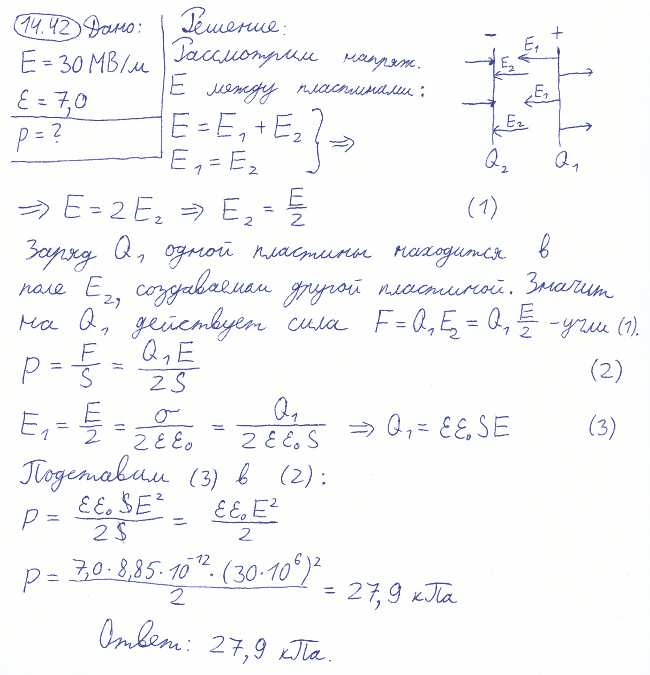 14.42 Дано:
E = 30 МВ/м
ε = 7,0
p = ?
Решение:
Рассмотрим напряж.
E между пластинами:
E = E₁ + E₂
E₁ = E₂ } ⇒
- +
E₁
E₂
E₁
E₂
Q₂ Q₁
⇒ E = 2E₂ ⇒ E₂ = E/2 (1)
Заряд Q₁ одной пластины находится в
поле E₂, создаваемом другой пластиной. Значит
на Q₁ действует сила F = Q₁E₂ = Q₁ E/2 - учли (1).
p = F/S = Q₁E/2S (2)
E₁ = E/2 = σ/2εε₀ = Q₁/2εε₀S ⇒ Q₁ = εε₀SE (3)
Подставим (3) в (2):
p = εε₀SE²/2S = εε₀E²/2
p = 7,0·8,85·10⁻¹²·(30·10⁶)²/2 = 27,9 кПа
Ответ: 27,9 кПа.